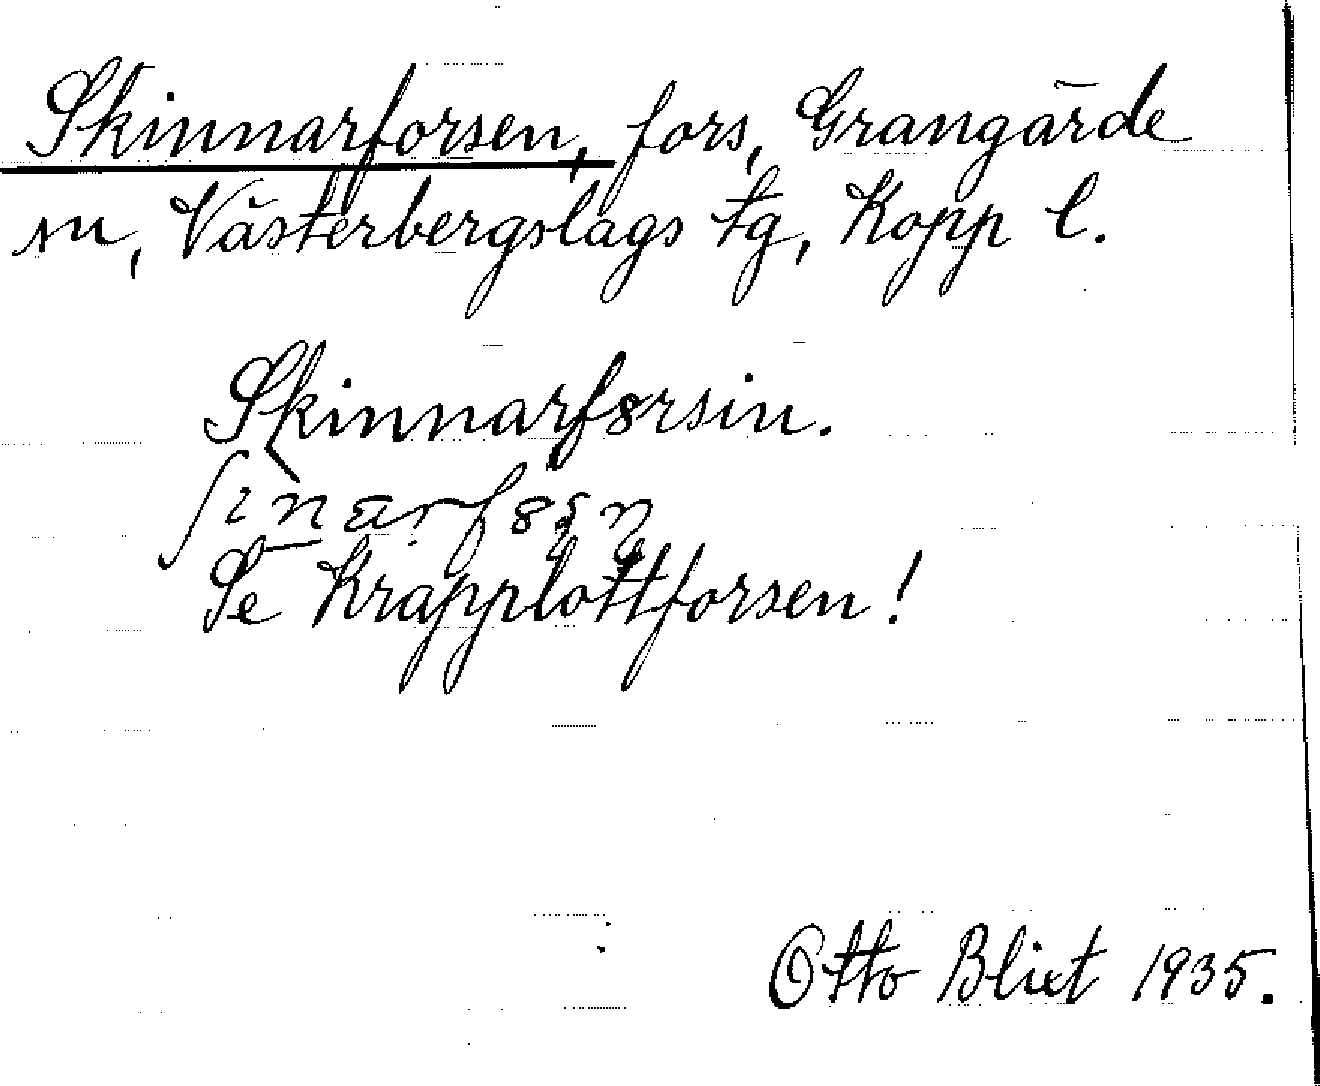 Skinnarforsen, fors, Grangärde
sn, Västerbergslags tg, Kopp l.
Skinnarf8rsin.
Se Krapplottforsen!
Otto Blixt 1935.